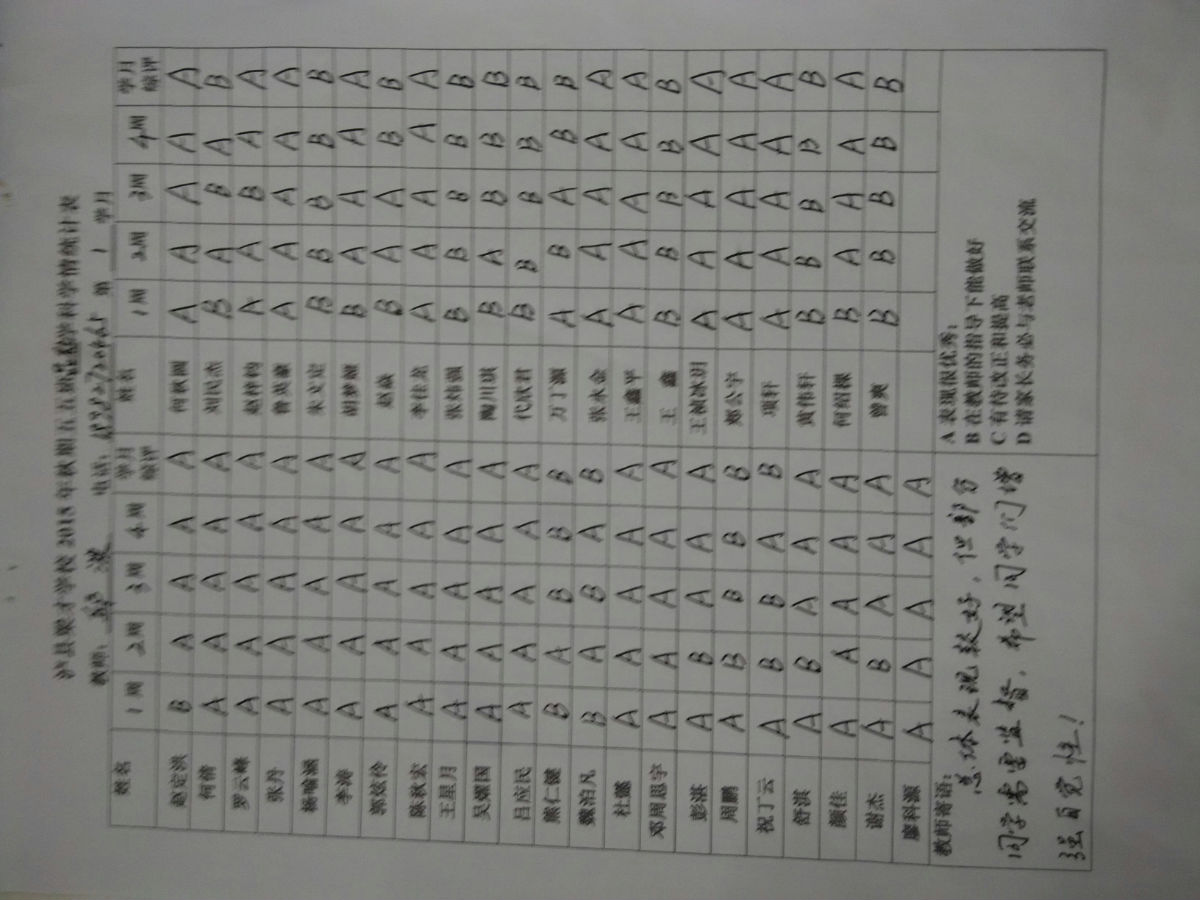 泸县梁才学校2018年秋期五五班品德学科学情统计表
教师: 电话: 第 1 学月
姓名 1周 2周 3周 4周 学月综评 姓名 1周 2周 3周 4周 学月综评
赵定洪 B A A A A 何秋圆 A A A A A
何倩 A A A A A 刘民杰 B A B A B
罗云峰 A A A A A 赵梓钧 A A B A A
张丹 A A A A A 鲁英豪 A A A A A
杨喻涵 A A A A A 朱文定 B B B B B
李涛 A A A A A 胡梦娅 B A A A A
郭炫伶 A A A A A 赵焱 B A A B B
陈秋宏 A A A A A 李佳龙 A A A A A
王星月 A A A A A 张炜强 B B B B B
吴耀国 A A A A A 陶川琪 B A B B B
吕应民 A A A A A 代欣君 B B B B B
熊仁健 B A B B B 万丁源 A B A B B
魏治凡 B A B A B 张永金 A A A A A
杜璐 A A A A A 王鑫平 A A A A A
邓周思宇 A A A A A 王鑫 B B B B B
彭湛 A B A A A 王祯冰玥 A A A A A
周鹏 A B B B B 郑公宇 A A A A A
祝丁云 A B B A B 项轩 A A A A A
舒淇 A B A A A 黄伟轩 B B B B B
颜佳 A A A A A 何绍棵 B A A A A
谢杰 A B A A A 曾爽 B B B B B
廖科源 A A A A A
教师寄语:
总体表现较好，但部分
同学需监督，希望同学们增
强自觉性！
A 表现很优秀；
B 在教师的指导下能做好
C 有待改正和提高
D 请家长务必与老师联系交流